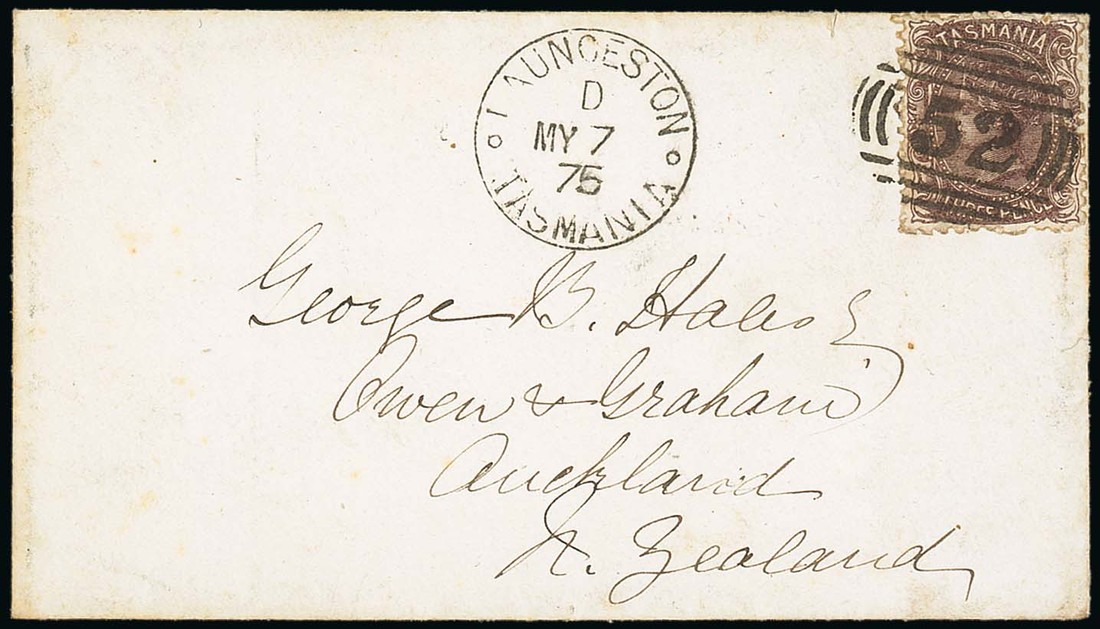 TASMANIA
52
THREE PENCE
LAUNCESTON
D
MY 7
75
TASMANIA
George B. Hales
Owen & Graham
Auckland
N. Zealand